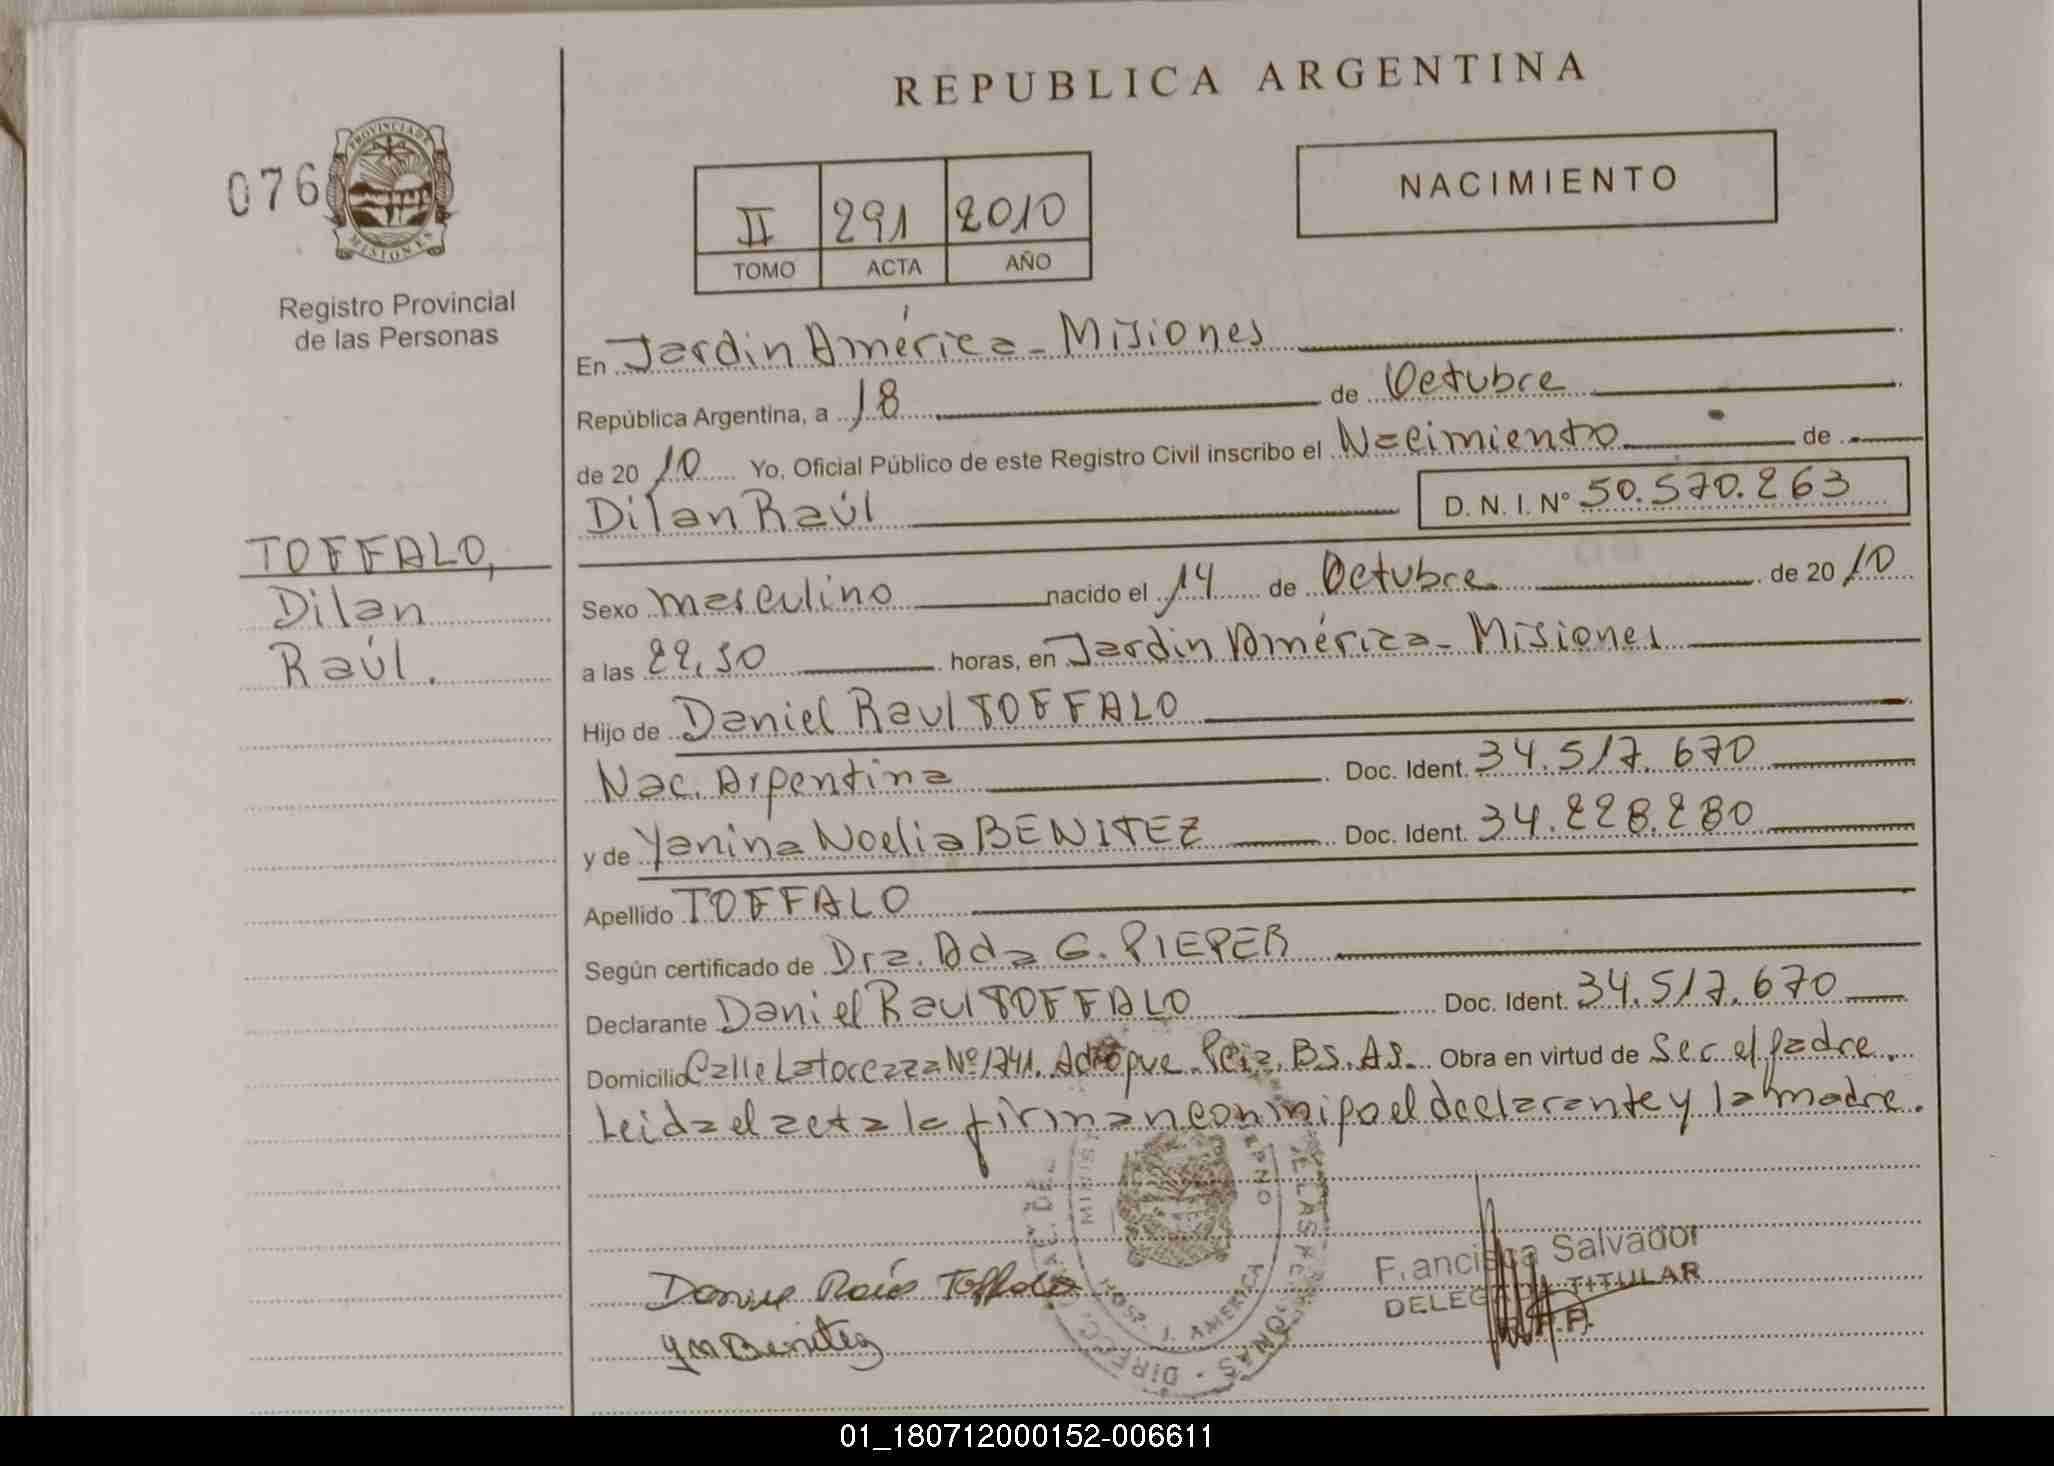 REPUBLICA ARGENTINA
076
PROVINCIA DE MISIONES
Registro Provincial
de las Personas
II 291 2010
TOMO ACTA AÑO
NACIMIENTO
En Jardin América - Misiones
República Argentina, a 18 de Octubre
de 2010 Yo, Oficial Público de este Registro Civil inscribo el Nacimiento de
Dilan Raúl D. N. I. Nº 50.570.263
TOFFALO,
Dilan
Raúl.
Sexo masculino nacido el 14 de Octubre de 2010
a las 22,30 horas, en Jardin América - Misiones
Hijo de Daniel Raul TOFFALO
Nac. Argentina Doc. Ident. 34.517.670
y de Yanina Noelia BENITEZ Doc. Ident. 34.228.280
Apellido TOFFALO
Según certificado de Dra. Ada G. PIEPER
Declarante Daniel Raul TOFFALO Doc. Ident. 34.517.670
Domicilio Calle Nº 1741. Pcia. Bs. As. Obra en virtud de Ser el padre.
Leida el acta la firman conmigo el declarante y la madre.
Toffalo
Benitez
Francisca Salvador
DELEGADO TITULAR
R.P.P.
HOSP. J. AMERICA
01_180712000152-006611